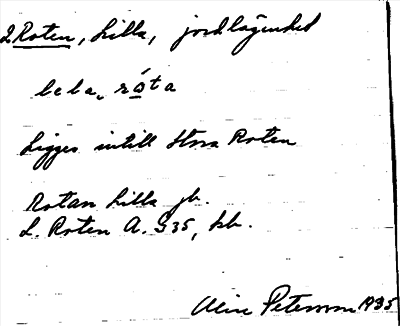 L Roten, Lilla, jordlägenhet
lɩla, rǫ́ta
Ligger intill Stora Roten
Rotan Lilla jb.
L. Roten A. G35, kb.
Petersson 1935